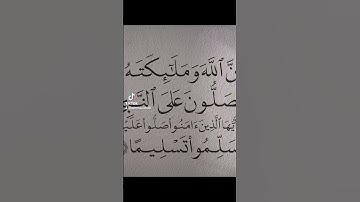 نَّ ٱللَّهَ وَمَلَـٰٓئِكَتَهُ
صَلُّونَ عَلَى ٱلنَّبِ
يُّهَا ٱلَّذِينَ ءَامَنُوا۟ صَلُّوا۟ عَلَيْ
سَلِّمُوا۟ تَسْلِيمًا